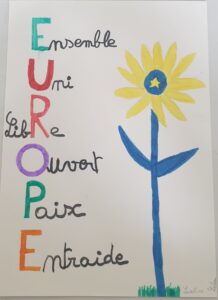 Ensemble
Uni
LibRe
Ouvert
Paix
Entraide